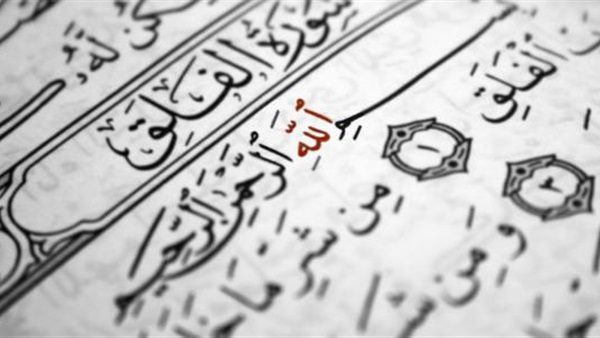 لَّهُ
سُورَةُ الفَلَقِ
ٱللَّهِ ٱلرَّحْمَٰنِ ٱلرَّحِيمِ
ٱلْفَلَقِ ١ مِن شَرِّ مَا
٢ وَمِن شَرِّ